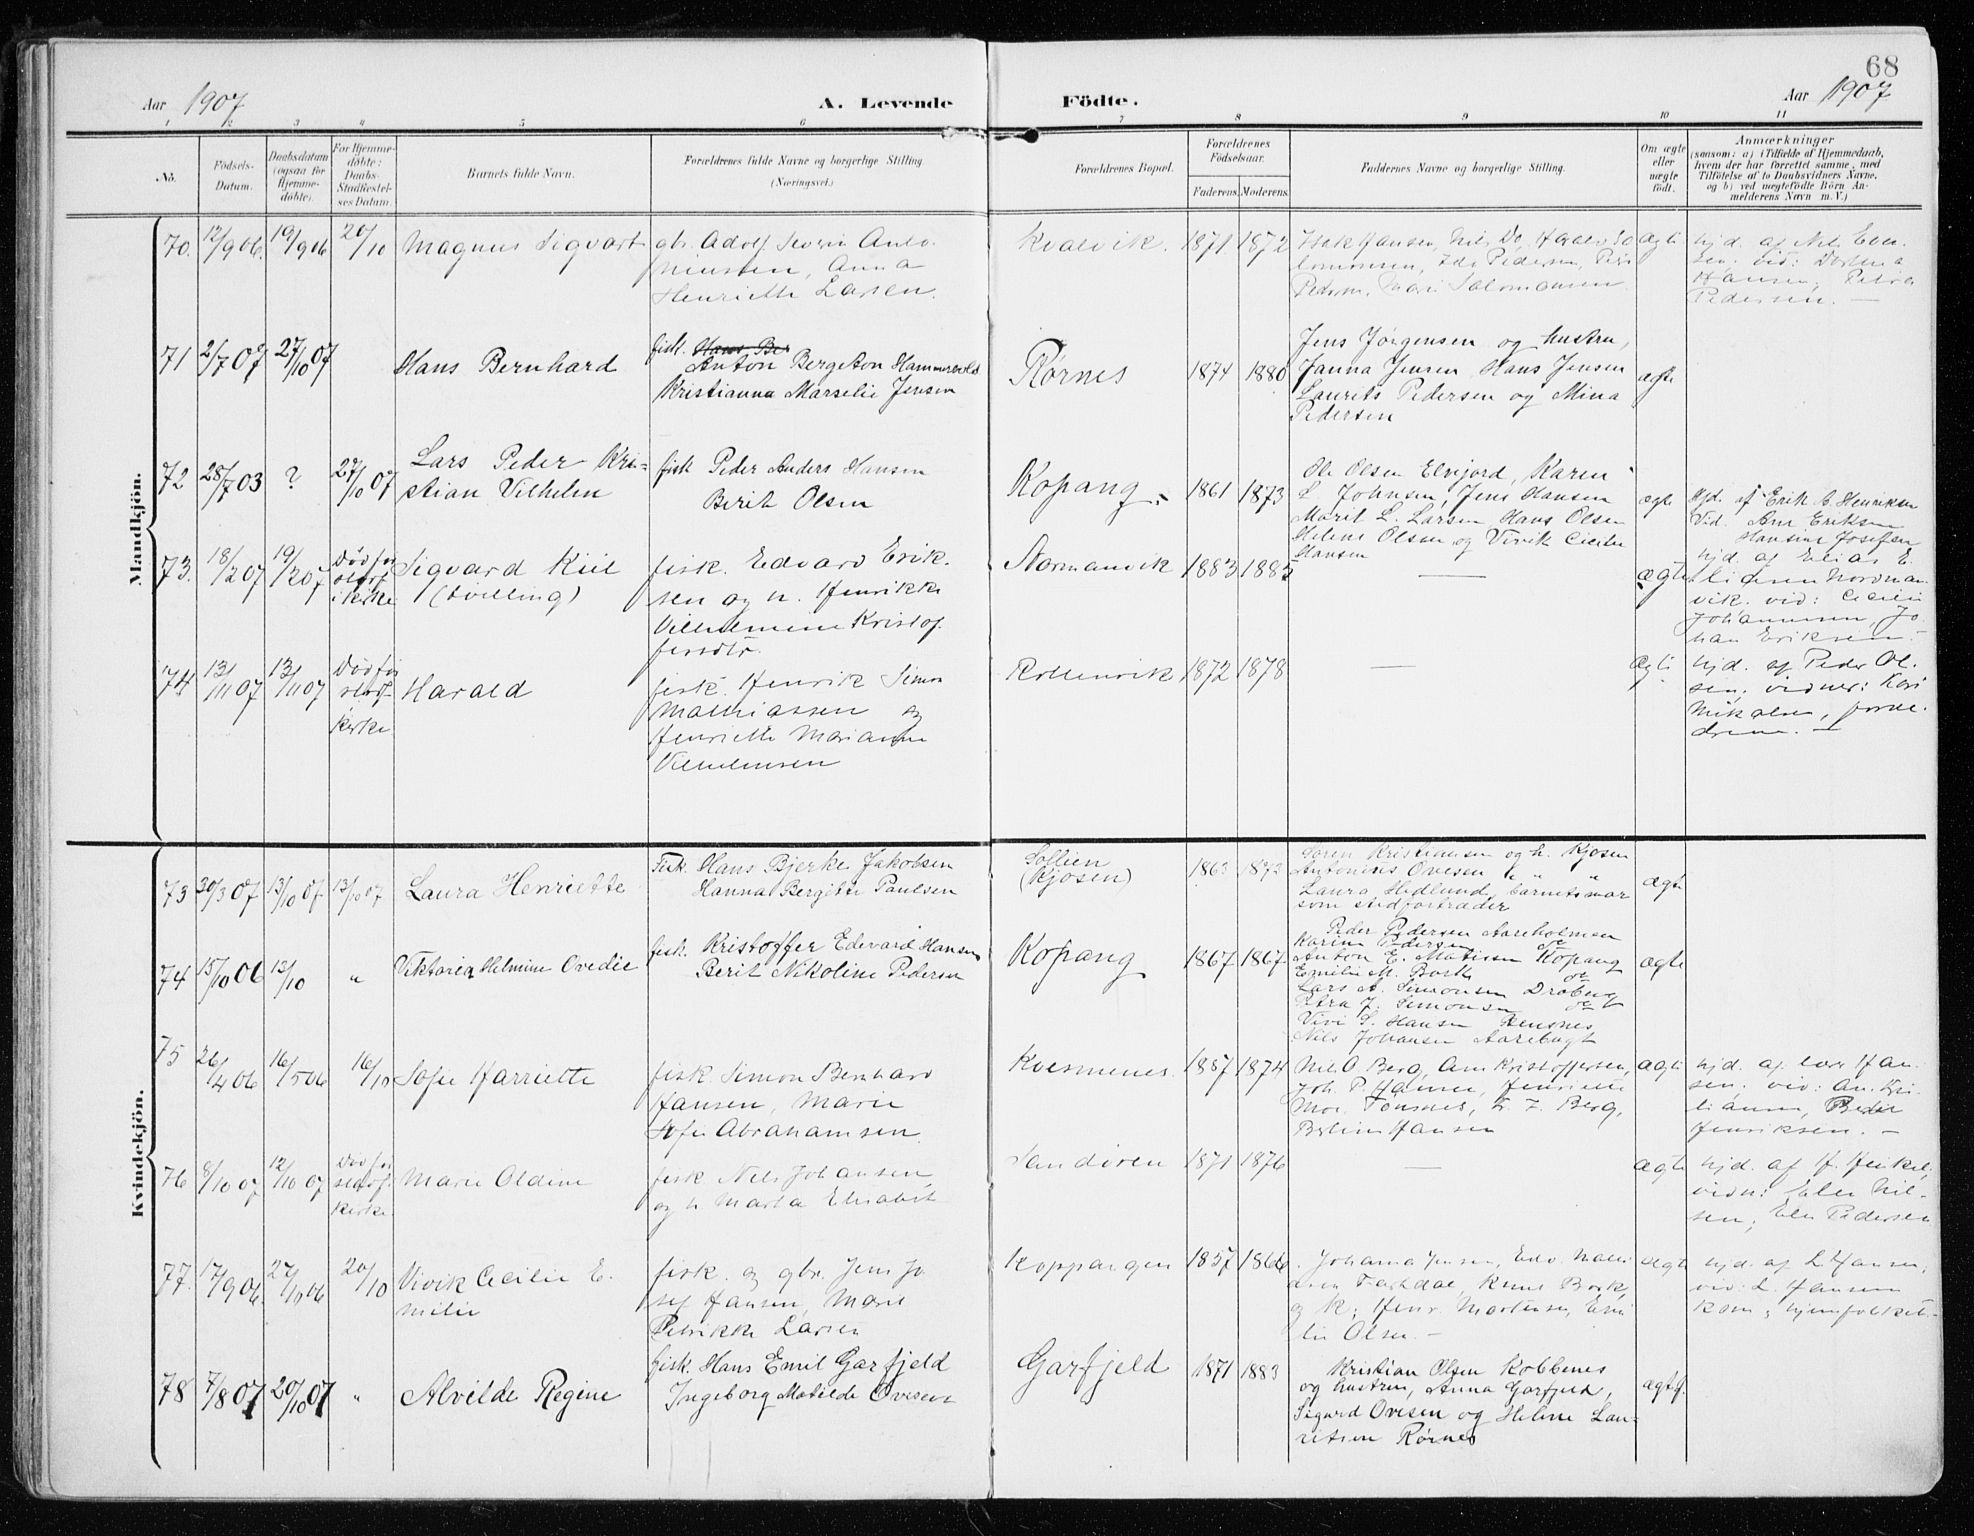 68
Aar 1907
A. Levende Födte.
Aar 1907
1 2 3 4 5 6 7 8 9 10 11
No.
Födsels-Datum.
Daabsdatum (ogsaa for Hjemmedöbte).
For Hjemmedöbte: Daabs-Stadfæstelses Datum.
Barnets fulde Navn.
Forældrenes fulde Navne og borgerlige Stilling.
(Næringsvei.)
Forældrenes Bopæl.
Forældrenes Födselsaar.
Faderens. Moderens.
Faddernes Navne og borgerlige Stilling.
Om ægte eller uægte födt.
Anmærkninger
(saasom: a) i Tilfælde af Hjemmedaab, hvem der har forrettet samme, med Tilföielse af to Daabsvidners Navne, og b) ved uegtefödte Börn Anmelderens Navn m. V.)
Mandkjön.
70. 12/9 06. 19/9 06 20/10 Magnus Sigvart
gbr. Adolf Severin Anto-
niussen, Anna
Henriette Larsen.
Kvalvik. 1871 1872
Isak Hansen, Nils Do, Harald Sa
lomonsen, Ida Pedersen,
Pedersen, Marie Salomonsen
ægte
hjd. af Nils
vid: Dortea
Hansen, Petra
Pedersen. —
71 2/7 07 27/10 07 Hans Bernhard
fisk. Hans Ber
Anton Bergeton Hammervold
Kristianna Marselie Jensen
Rørnes 1874 1880
Jens Jørgensen og hustru,
Janna Jensen, Hans Jensen
Laurits Pedersen og Mina
Pedersen
ægte
72 28/7 03 ? 27/10 07 Lars Peder Kri-
stian Vilhelm
fisk Peder Anders Hansen
Berit Olsen
Kopang. 1861 1873
Ole Olsen Elvejord, Karen
L. Johnsen, Jens Hansen
Marit L. Larsen, Hans Olsen
Helene Olsen og Vivik Cicilie
Hansen
ægte
Hjd. af Erik A. Henriksen
Vid. Ane Eriksen
Hansine Josefsen
73. 18/2 07 19/2 07 Død før
stadf.
i kirke
Sigvard Kiil
(tvilling)
fisk. Edvard Erik-
sen og h. Henrikke
Vilhelmine Kristof-
fersdtr.
Normanvik 1883 1885
—
ægte
hjd. af Elias E-
liasen Nordman-
vik. vid: Cecilie
Johannesen, Jo-
han Eriksen. —
74 13/11 07 13/11 07 Død før
stadf.
kirke
Harald
fisk. Henrik Simon
Mathiassen og
Henriette Marianne
Vilhelmsen
1872 1878
—
ægte
hjd. af Peder Ol-
sen; vidner: Kari
Mikalsen, foræl-
drene. —
Kvindekjön.
73 30/3 07 13/10 07. 13/10 07 Laura Henriette
Fisk. Hans Bjerke Jakobsen
Hanna Bergitte Paulsen
Sollien
(Kjosen)
1863 1873
Søren Kristiansen og h. Kjosen
Antonius Ovesen " " "
Laura Hedlund, barnets mor
som stedfortræder
ægte
74 15/10 06 13/10 " Viktoria Helmine Ovedie
fisk. Kristoffer Edevard Hansen
Berit Nikoline Pedersen
Kopang 1867 1867
Peder Pedersen Aareholmen
Karine Pedersen do
Anton E. Matisen Kopang
Emilie M. Bork do
Lars A. Simonsen
Petra J. Simonsen do
Vivi S. Hansen
Nils Johansen Aarebugt
ægte
75 26/4 06 16/5 06 16/10 Sofie Harriette
fisk. Simon Bernhard
Hansen, Marie
Sofie Abrahamsen
Kvesmenes. 1857 1874
Nil O. Berg, Ane Kristoffersen,
Joh. P. Hansen, Henriette
Mor. Tønsnes, Berg,
Berline Hansen
ægte
hjd. af Han-
sen; vid: An. Kri-
Peder
Henriksen. —
76 8/10 07 12/10 07 Død før
stadf.
kirke
Marie Oldine
fisk. Nils Johansen
og h Marta Elisabet
Sandøren 1871 1876
—
ægte
hjd. af H. Henkel;
vidn: Elen Nil-
sen, Elen Pedersen
77. 17/9 06. 27/10 06 20/10 Vivik Cecilie E-
milie
fisk. og gbr. Jens Jo-
sef Hansen, Marit
Petrikke Larsen
Koppangen 1857 1866
Johanna Jensen, Edv. Mathi
Bork,
og k; Henr. Martensen, Emi
lie Olsen. —
ægte
hjd. af L Hansen;
vid: L. Hansen
kone, hjemfolket. —
78 7/8 07 20/10 07 " Alvilde Regine
fisk. Hans Emil Garfjeld
Ingeborg Matilde Ovesen
Garfjeld 1871 1883
Kristian Olsen Kobbenes
og hustru, Anna Garfjeld,
Sigurd Ovesen og Helene Lau-
ritsen Rørnes
ægte